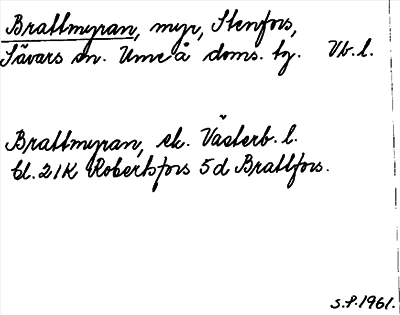 Brattmyran, myr, Stenfors,
Sävars sn. Umeå doms. tg. Vb. l.
Brattmyran, ek. Västerb. l.
bl. 21K Robertsfors 5d Brattfors.
s.f. 1961.